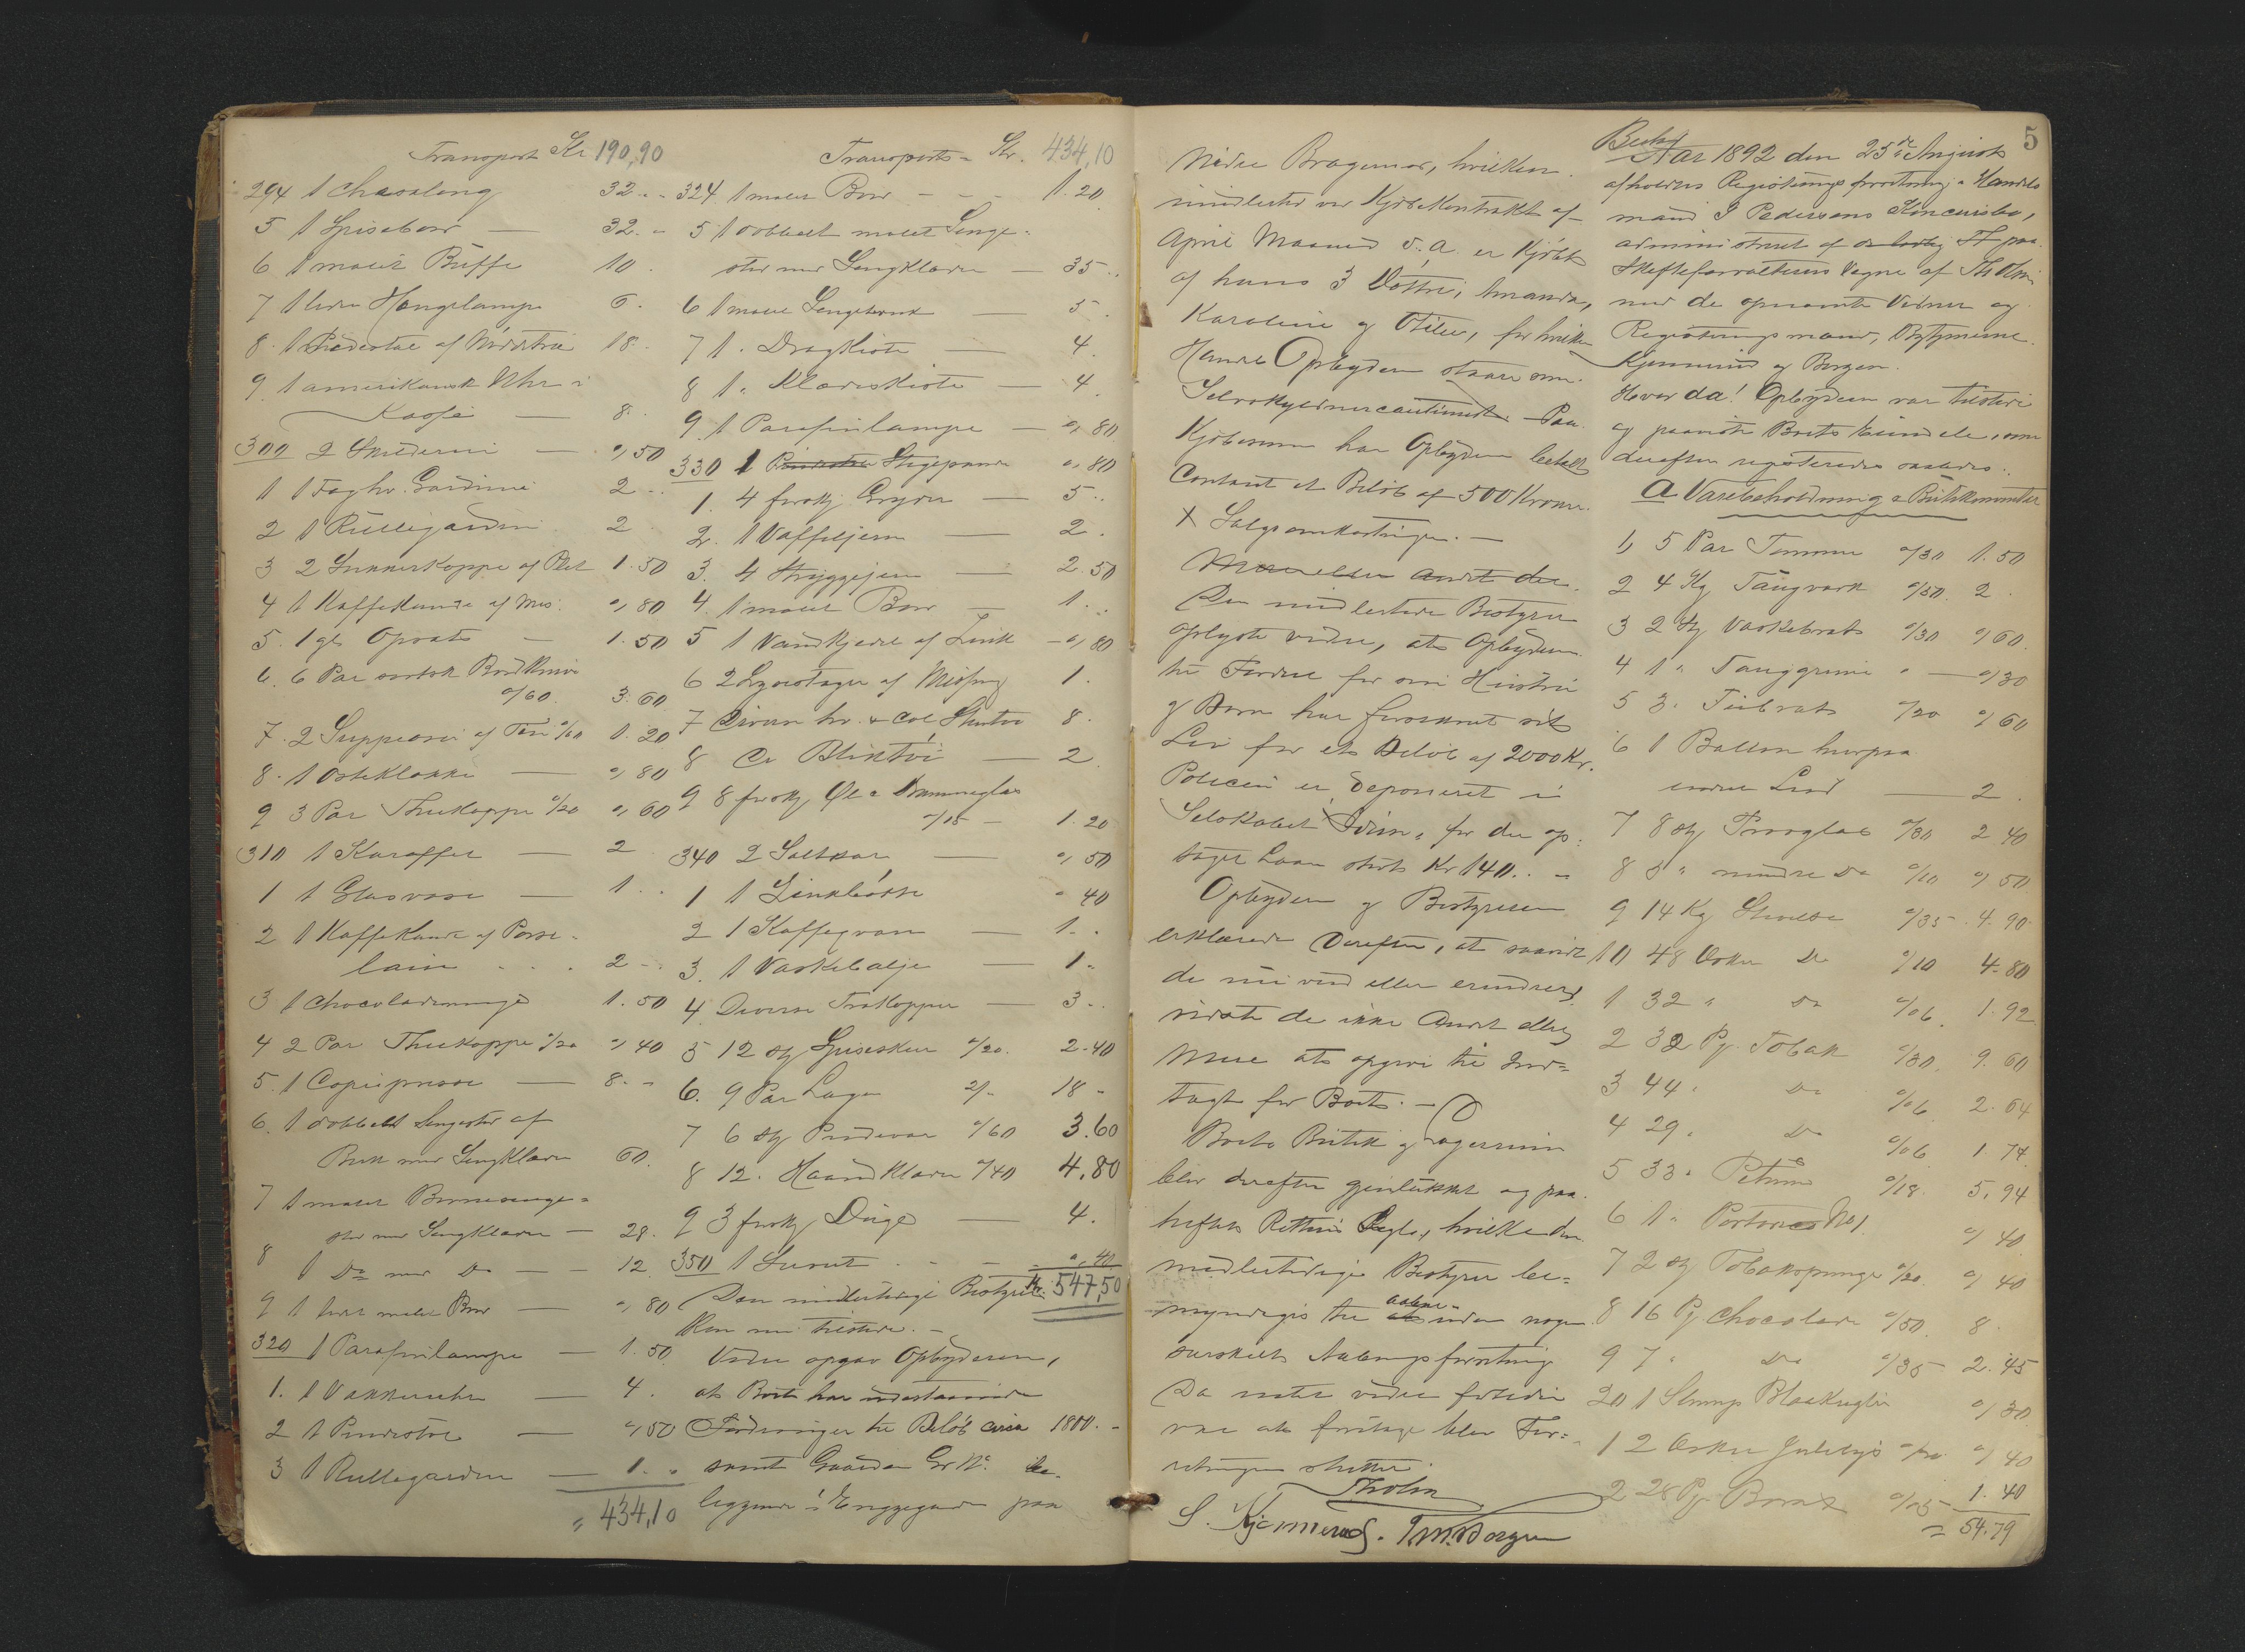 Transport Kr 190,90
294 1 Chaselong 32 . -
5 1 Spisebord — 32 . -
6 1 malet Buffe 10 .
7 1 liden Hængelampe 6 .
8 . 1 Piedestal af Nødetræ 18 .
9 1 amerikansk Uhr i
Kasse — 8 .
300 2 Skilderier — " 50
1 1 Fag hv. Gardiner 2 . .
2 1 Rullegardin 2
3 2 Sukkerkopper af Plet 1 . 50
4 1 Kaffekande af Mes. " 80
5 . 1 gl. Opsats — 1 . 50
6 . 6 Par sortsk. Bordknive
a/60 3 . 60
7 . 2 Suppeøser af Tin a/60 1 . 20
8 . 1 Osteklokke — " 80
9 3 Par Theekopper a/20 " 60
310 1 Karaffel — 2
1 1 Glasvase — 1 . .
2 1 Kaffekande af Porse-
lain . . . 2 - .
3 1 Chocolademugge 1 . 50
4 2 Par Theekopper a/20 " 40
5 . 1 Copiepresse — 8 . -
6 . 1 dobbelt Sengested af
Birk med Sengklæder 60 .
7 1 malet Børnesenge-
sted med Sengklæder — 28 .
8 1 Do med Do — - 12
9 1 lidet malet Bord — " 80
320 1 Parafinlampe — 1 . 50
1 . 1 Vækkeruhr — 4 .
2 1 Pindestol — " 50
3 1 Rullegardin — 1 . "
" 434,10
Transport = Kr. 434,10
324 1 malet Bord - - - 1 . 20
5 1 dobbelt malet Senge-
sted med Sengklæder — 35 . .
6 1 malet Sengebænk — 5 .
7 1 . Dragkiste — 4 .
8 1 " Klædeskiste — 4
9 1 Parafinlampe — " 80
330 1 Pindestol Stegepande " 80
1 . 4 forskj. Gryder — 5 . .
2 . 1 Vaffeljern — 2 .
3 . 4 Strygejern — 2 . 50
4 . 1 malet Bord — 1 . .
5 1 Vandkjedel af Zink — " 80
6 2 Lysestager af Messing 1 .
7 Diverse hv. & col. Stentøi 8 .
8 Do Bliktøi — 2 .
9 8 forskj. Øl & Dramneglas
a/15 - 1 . 20
340 2 Saltkar — " 50
1 1 Zinkbøtte " 40
2 1 Kaffekværn — 1 . .
3 . 1 Vaskebalje — 1 "
4 Diverse Trækopper — 3 . .
5 12 St. Spiseskeer a/20 . 2 . 40
6 . 9 Par Lagen 2/- 18 -
7 6 St. Pudevar a/60 3.60
8 12 . Haandklæder a/40 4.80
9 3 forskj. Duge — 4 .
350 1 " 40
Kr. 547,50
Den midlertidige Bestyrer
kom nu tilstede . —
Videre opgav Opbyderen,
at Boet har udestaaende
Fordringer til Beløb circa 1800 . -
samt Gaarden Gr No. be-
liggende i Enggegaden paa
Nedre Bragernes, hvilken
imidlertid ved Kjøbekontrakt af
April Maaned d. a. er kjøbt
af hans 3 Døttre, Amanda,
Karoline og Otilie, for hvilken
Handel Opbyderen staar som
Selvskyldnercautionist. Paa
Kjøbesummen har Opbyderen betalt
Contant et Beløb af 500 Kroner.
X Salgsomkostninger . —
Den midlertidige Bestyrer
oplyste videre, at Opbyderen
til Fordel for sin Hustru
og Børn har forsikret sit
Liv for et Beløb af 2000 Kr.
Policen er deponeret i
Selskabet "Idun" for der op-
taget Laan stort Kr 140 . . -
Opbyderen og Bestyreren
erklærede derefter, at saavidt
de nu ved eller erindrer,
vidste de ikke Andet eller
Mere at opgive til Ind-
tægt for Boet . —
Boets Butik og Lagerrum
blev derefter gjenlukket og paa-
heftet Rettens Segl, hvilke den
midlertidige Bestyrer be-
myndiges til at aabne uden nogen
særskilt Aabningsforretning
Da intet videre forelaa
var at foretage blev For-
retningen sluttet .
Tholm
S. Kjemmerud . T. M. Borgen
5
Beskj.
Aar 1892 den 25de August
afholdtes Registreringsforretning i Handels-
mand I Pedersens Konkursbo,
administreret af Ft paa
Skifteforvalterens Vegne af Th. Olsen
med de opnævnte Vidner og
Registreringsmænd, Bestyrerne
Kjemmerud og Borgen .
Hvor da! Opbyderen var tilstede
og paaviste Boets Eiendele, som
derefter registreredes saaledes .
a Varebeholdning & Butikinventar
1, 5 Par Tømmer a/30 1 . 50
2 4 Kg Taugværk a/50 . 2 .
3 2 St Vaskebræt a/30 " 60
4 1 " Tauggrime " — " 30
5 3 . Fiebræt a/20 " 60
6 1 Ballon hvorpaa
endel Lud — 2 .
7 8 St. Prøveglas a/30 2 40
8 5 " mindre Do a/10 " 50
9 14 Kg Stivelse a/35 . 4 . 90
10 48 Æsker Do a/10 4 . 80
1 32 " Do a/06 . 1 . 92
2 32 Pk. Tobak a/30 . 9 . 60
3 44 . Do a/06 2 . 64
4 29 . Do a/06 1 74
5 33 . Petum a/18 . 5 . 94
6 1 " Portorico No 1. " 40
7 2 St Tobakspunge a/20 . " 40
8 16 Pk. Chocolade a/50 . 8
9 7 . Do a/35 2 . 45
20 1 Slump Blaakugler " 30
1 2 Æsker Julelys a/20 " 40
2 28 Pk. Borax a/05 1 . 40
= 54,79